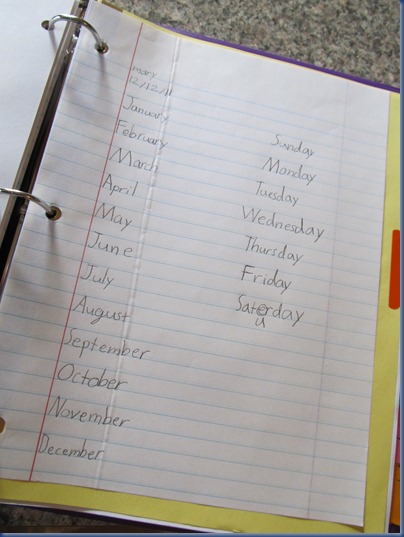 mary
12/12/11
January
February
March
April
May
June
July
August
September
October
November
December
Sunday
Monday
Tuesday
Wednesday
Thursday
Friday
Saterday
u